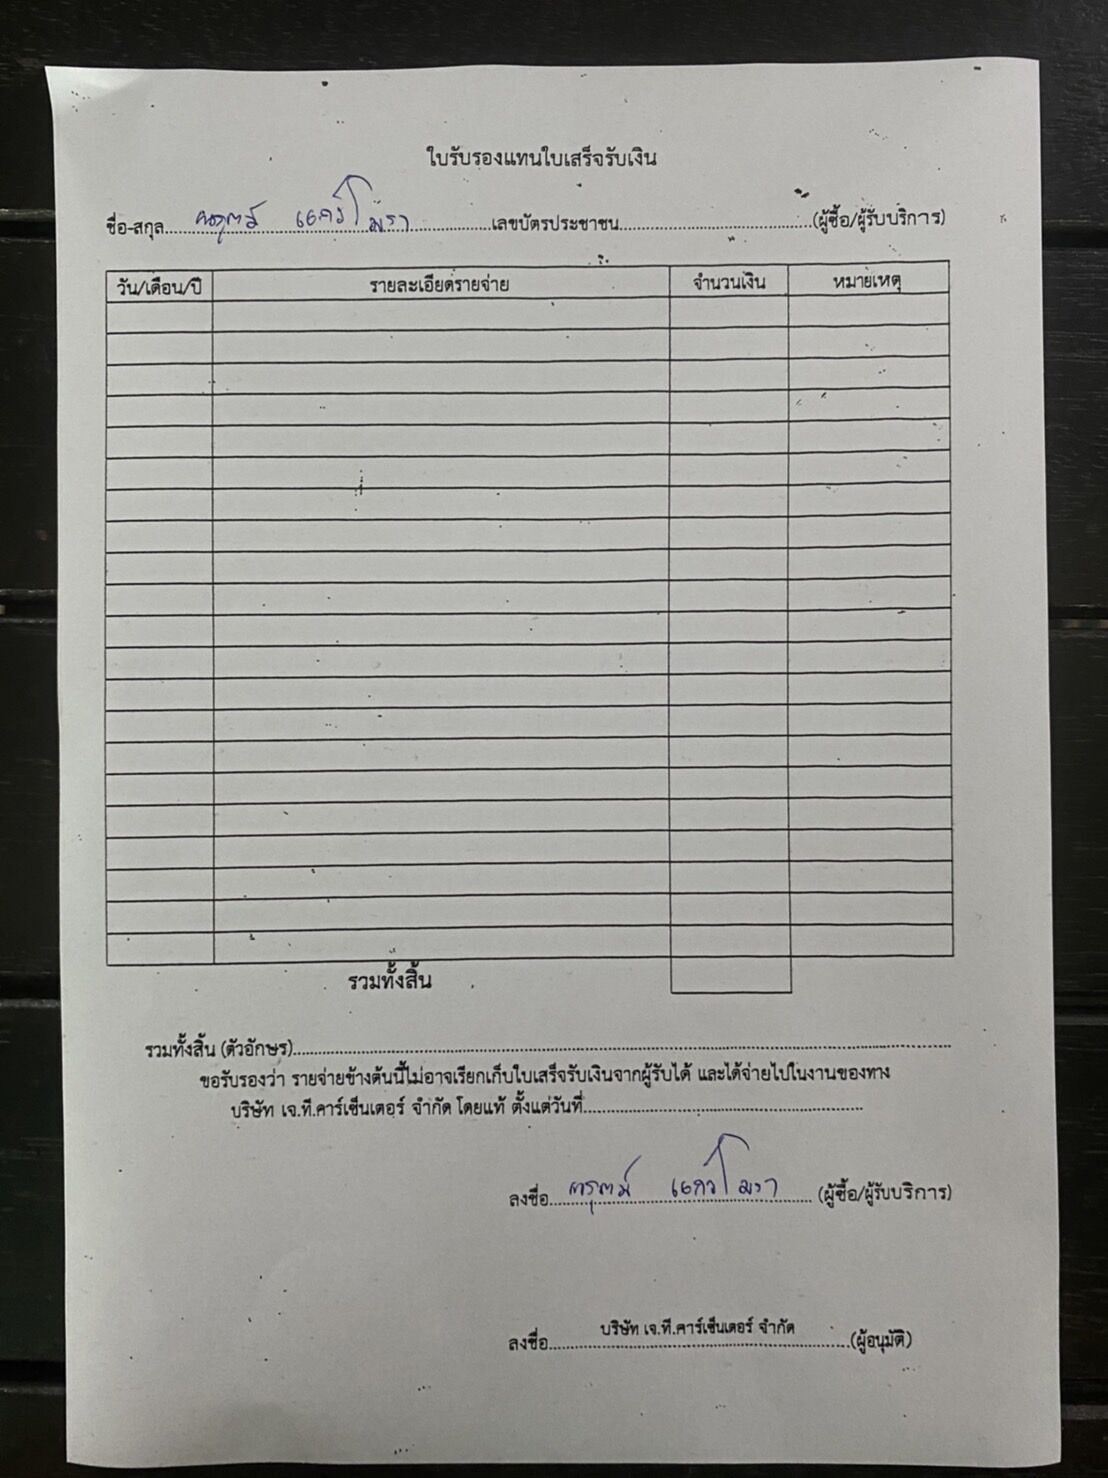 ใบรับรองแทนใบเสร็จรับเงิน
ชื่อ-สกุล.....................เลขบัตรประชาชน.....................(ผู้ซื้อ/ผู้รับบริการ)
วัน/เดือน/ปี รายละเอียดรายจ่าย จำนวนเงิน หมายเหตุ
รวมทั้งสิ้น
รวมทั้งสิ้น (ตัวอักษร).....................
ขอรับรองว่า รายจ่ายข้างต้นนี้ไม่อาจเรียกเก็บใบเสร็จรับเงินจากผู้รับได้ และได้จ่ายไปในงานของทาง
บริษัท เจ.ที.คาร์เซ็นเตอร์ จำกัด โดยแท้ ตั้งแต่วันที่.....................
ลงชื่อ.....................(ผู้ซื้อ/ผู้รับบริการ)
บริษัท เจ.ที.คาร์เซ็นเตอร์ จำกัด
ลงชื่อ.....................(ผู้อนุมัติ)